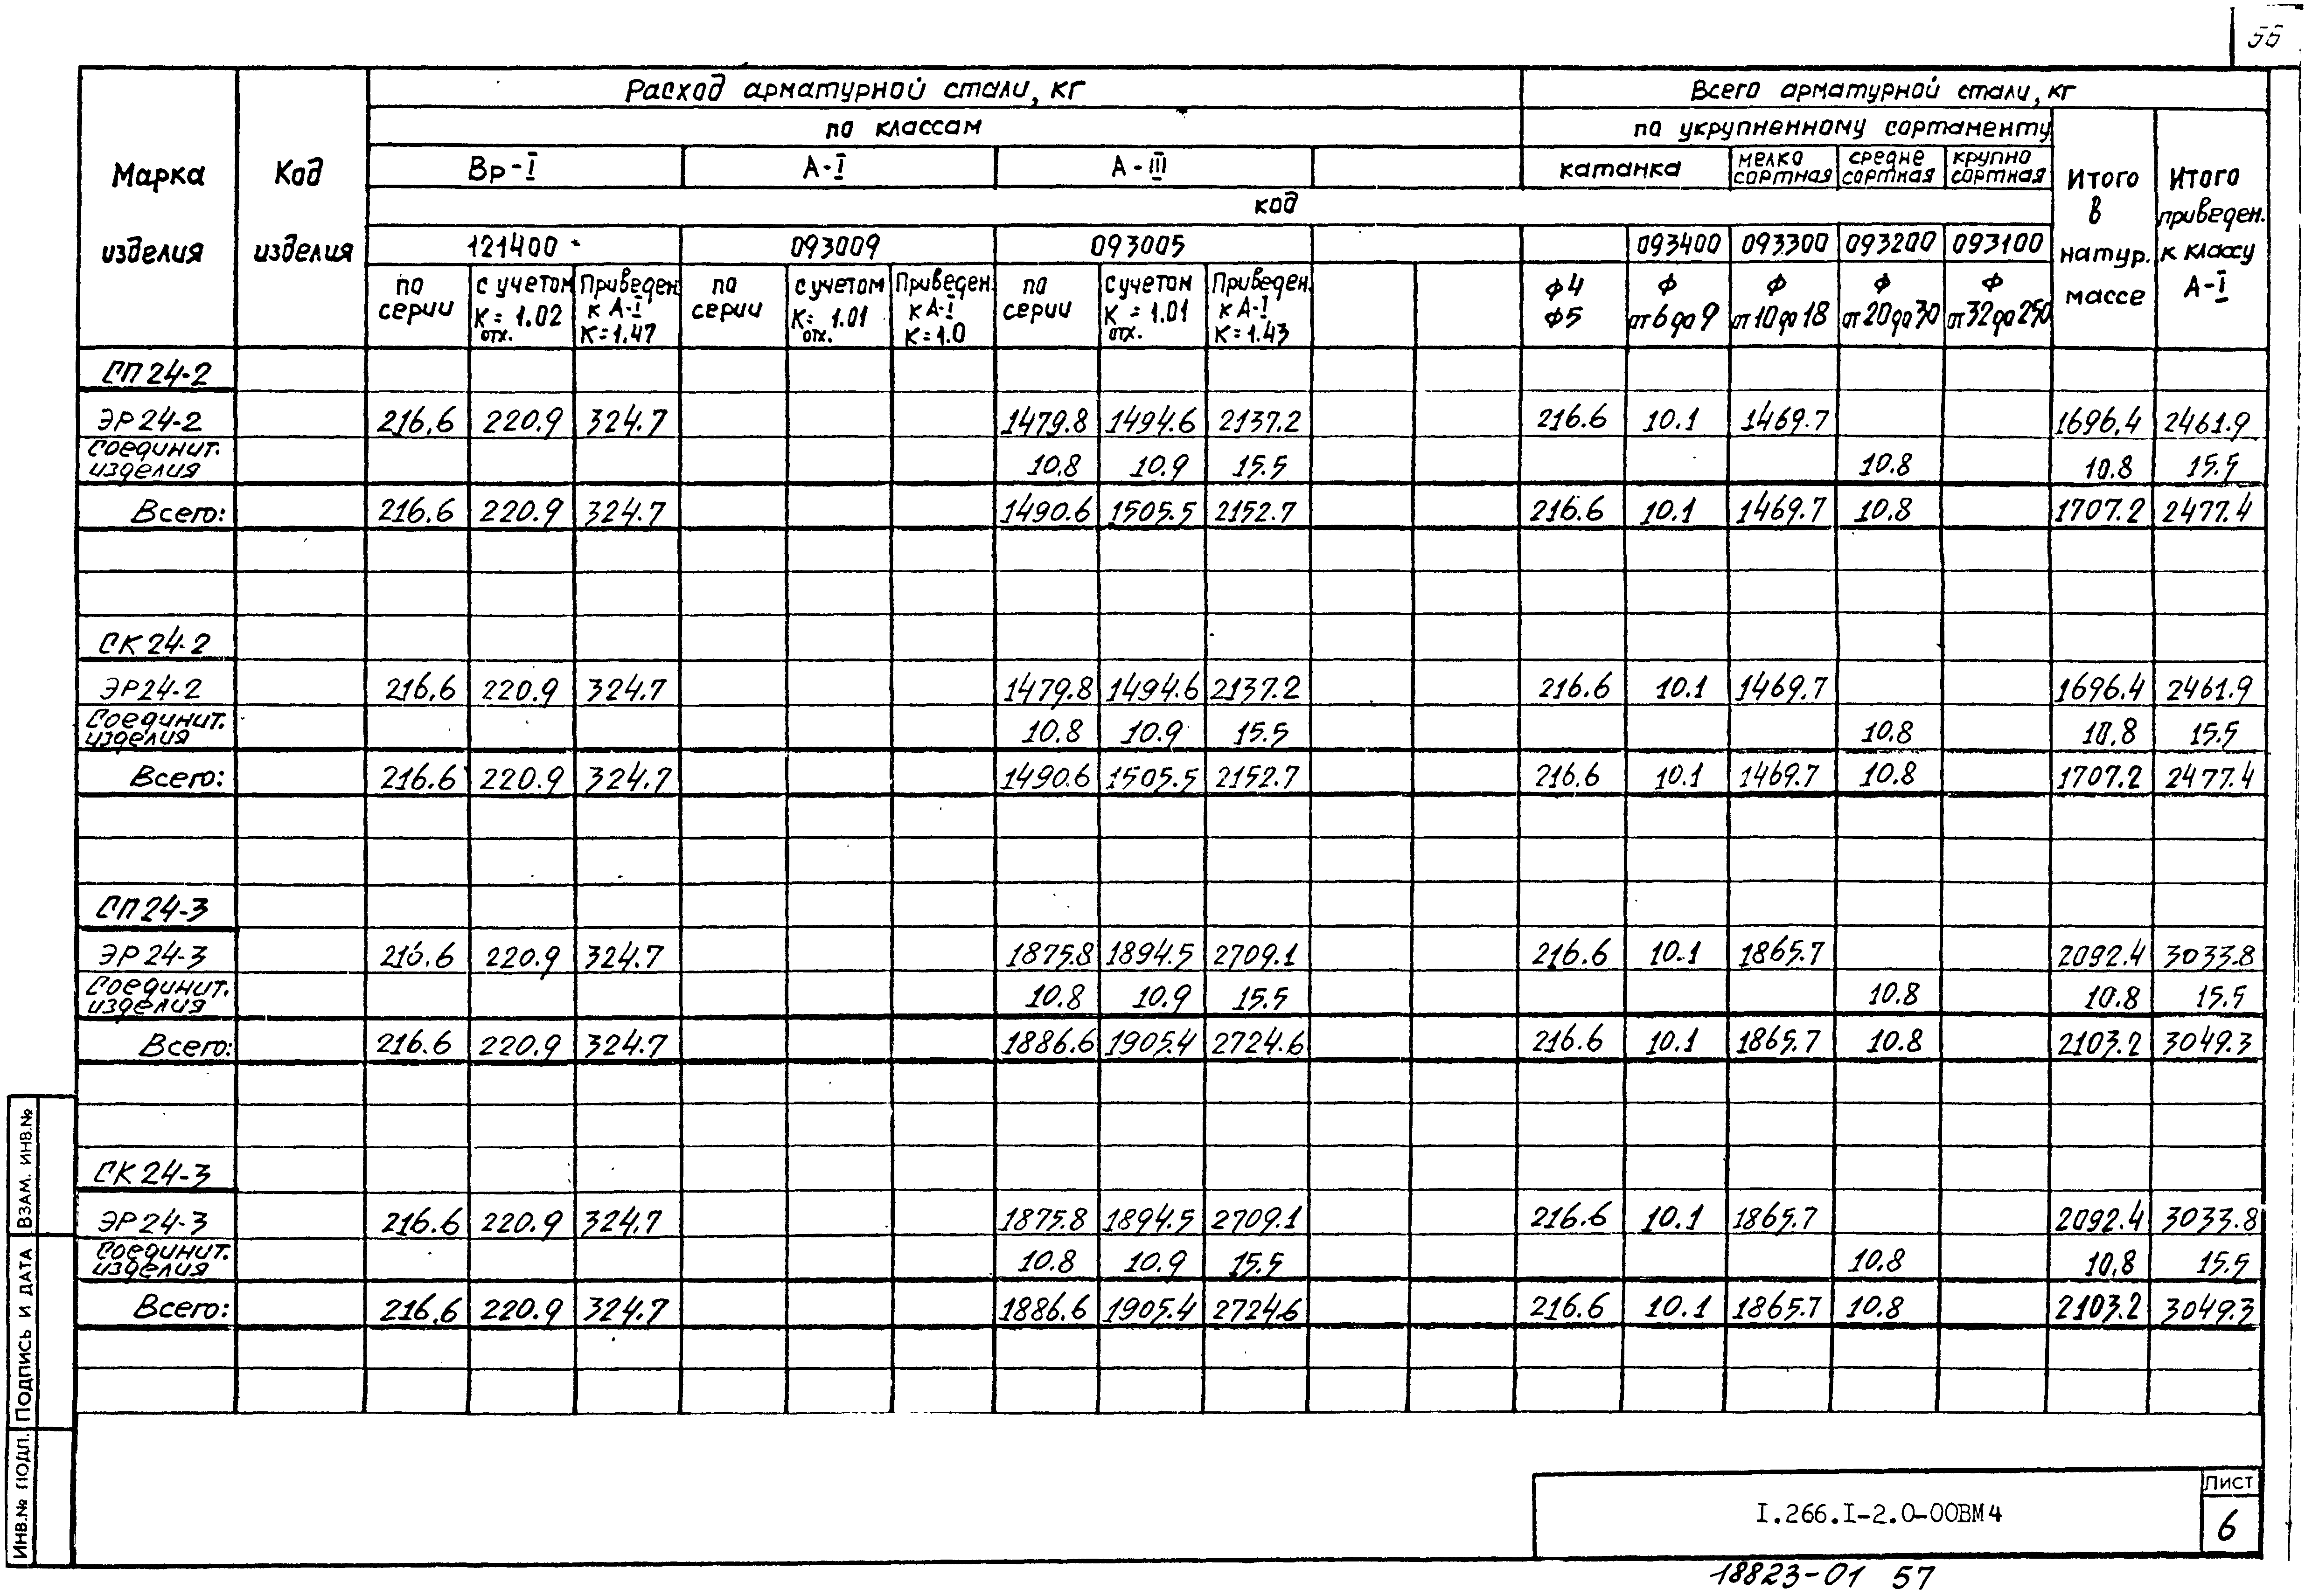 56
Марка изделия
Код изделия
Расход арматурной стали, кг
Всего арматурной стали, кг
по классам
по укрупненному сортаменту
Итого в натур. массе
Итого приведен. к классу А-I
Вр-I А-I А-III
катанка мелко сортная средне сортная крупно сортная
код
121400 093009 093005 093400 093300 093200 093100
по серии
с учетом К отх. = 1.02
Приведен. к А-I К=1.47
по серии
с учетом К отх. = 1.01
Приведен. к А-I К=1.0
по серии
с учетом К отх. = 1.01
Приведен. к А-I К=1.43
ф4 ф5
ф от 6 до 9
ф от 10 до 18
ф от 20 до 30
ф от 32 до 250
СП 24-2
ЭР 24-2 216.6 220.9 324.7 1479.8 1494.6 2137.2 216.6 10.1 1469.7 1696.4 2461.9
Соединит. изделия 10.8 10.9 15.5 10.8 10.8 15.5
Всего: 216.6 220.9 324.7 1490.6 1505.5 2152.7 216.6 10.1 1469.7 10.8 1707.2 2477.4
СК 24-2
ЭР 24-2 216.6 220.9 324.7 1479.8 1494.6 2137.2 216.6 10.1 1469.7 1696.4 2461.9
Соединит. изделия 10.8 10.9 15.5 10.8 10.8 15.5
Всего: 216.6 220.9 324.7 1490.6 1505.5 2152.7 216.6 10.1 1469.7 10.8 1707.2 2477.4
СП 24-3
ЭР 24-3 216.6 220.9 324.7 1875.8 1894.5 2709.1 216.6 10.1 1865.7 2092.4 3033.8
Соединит. изделия 10.8 10.9 15.5 10.8 10.8 15.5
Всего: 216.6 220.9 324.7 1886.6 1905.4 2724.6 216.6 10.1 1865.7 10.8 2103.2 3049.3
СК 24-3
ЭР 24-3 216.6 220.9 324.7 1875.8 1894.5 2709.1 216.6 10.1 1865.7 2092.4 3033.8
Соединит. изделия 10.8 10.9 15.5 10.8 10.8 15.5
Всего: 216.6 220.9 324.7 1886.6 1905.4 2724.6 216.6 10.1 1865.7 10.8 2103.2 3049.3
ИНВ.№ ПОДЛ. ПОДПИСЬ И ДАТА ВЗАМ. ИНВ.№
I.266.I-2.0-00ВМ4
Лист
6
18823-01 57